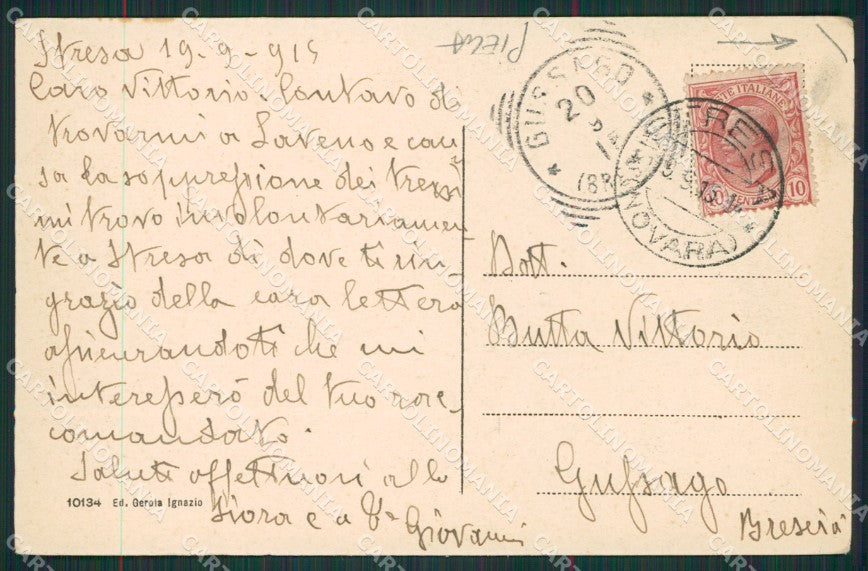 Stresa 19-9-915
Caro Vittorio. Contavo di
trovarmi a Laveno e cau_
sa la soppressione dei treni
mi trovo involontariamen_
te a Stresa di dove ti rin_
grazio della cara lettera
assicurandoti che mi
interesserò del tuo rac_
comandato.
Saluti affettuosi alla
Siora e a Te
Giovanni
10134 Ed. Gerola Ignazio
PIEGA
GUSSAGO
20
STRESA
(NOVARA)
19.9.15
POSTE ITALIANE
10
CENT
10
Dott.
Butta Vittorio
Gussago
Brescia
CARTOLINOMANIA